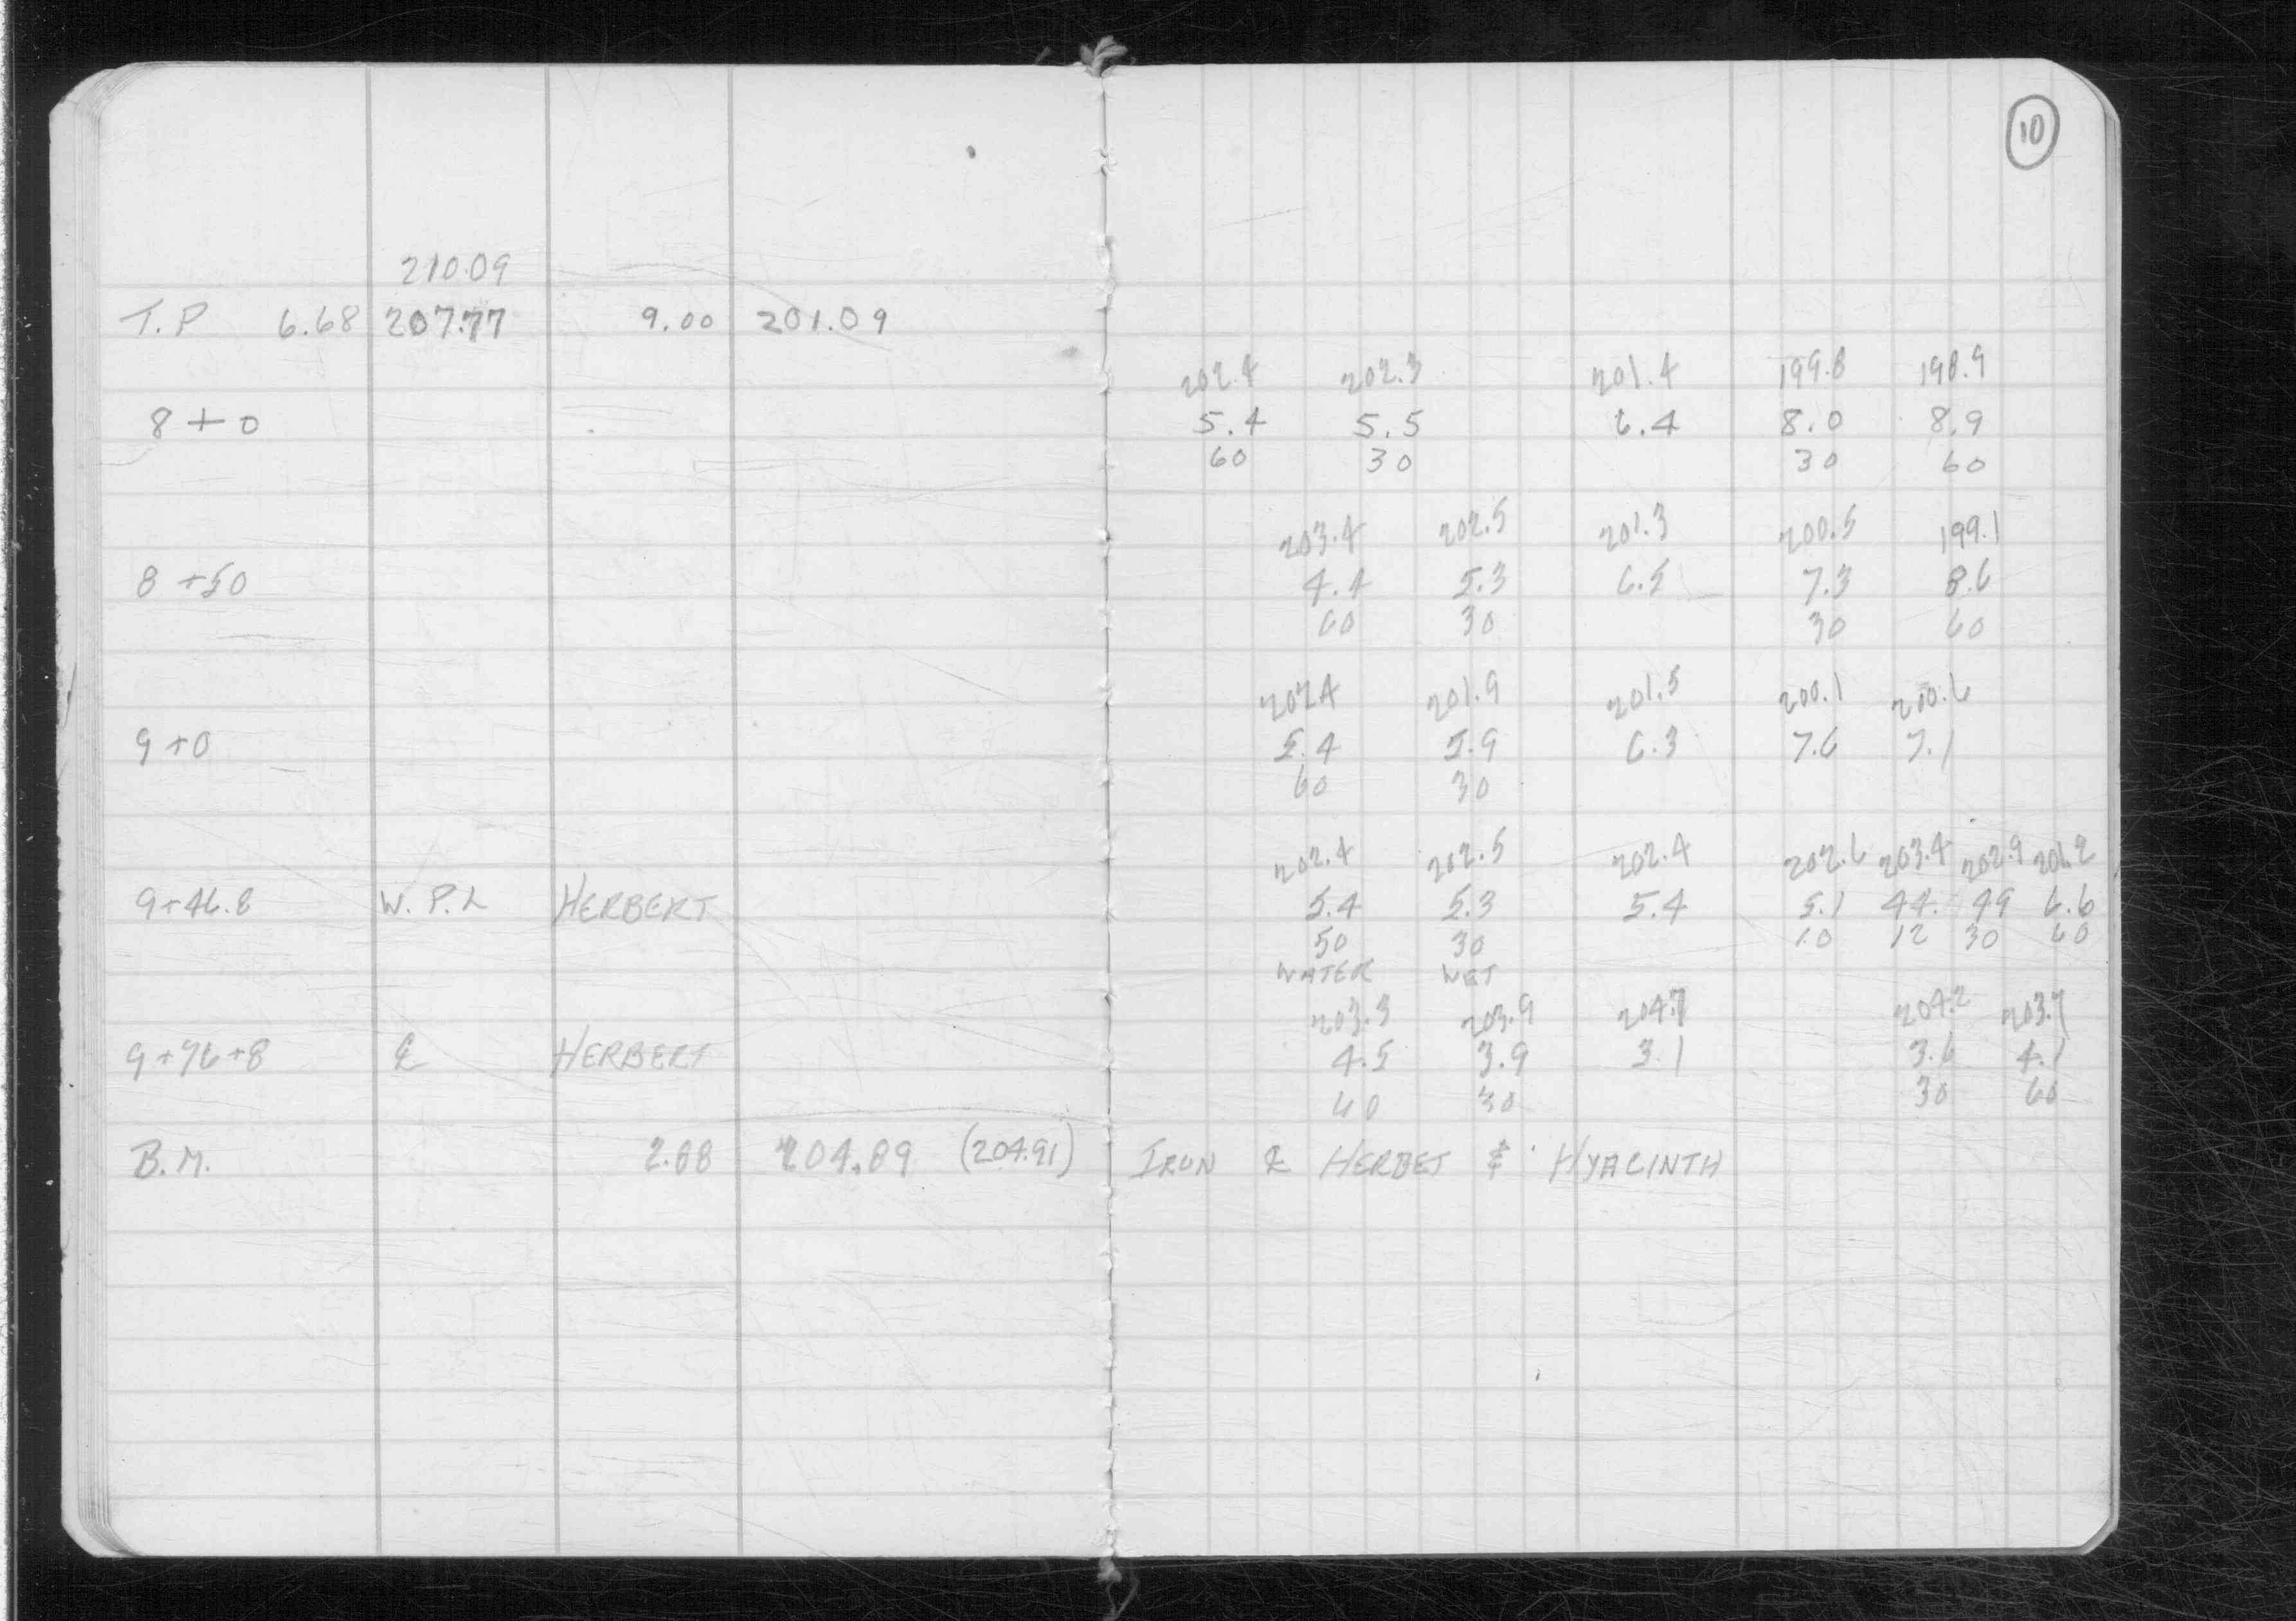 10
210.09
T.P 6.68 207.77 9.00 201.09
202.4 202.3 201.4 199.8 198.9
8+0 5.4 5.5 6.4 8.0 8.9
60 30 30 60
203.4 202.5 201.3 200.5 199.1
8+50 4.4 5.3 6.5 7.3 8.6
60 30 30 60
202.4 201.9 201.5 200.1 200.6
9+0 5.4 5.9 6.3 7.6 7.1
60 30
202.4 202.5 202.4 202.6 203.4 202.9 201.2
9+46.8 W.P.L HERBERT 5.4 5.3 5.4 5.1 44. 49 6.6
50 30 10 12 30 60
WATER WET
203.3 203.9 204.7 204.2 203.7
9+96+8 ℄ HERBERT 4.5 3.9 3.1 3.6 4.1
60 30 30 60
B.M. 2.88 204.89 (204.91) IRON ℄ HERBET & HYACINTH